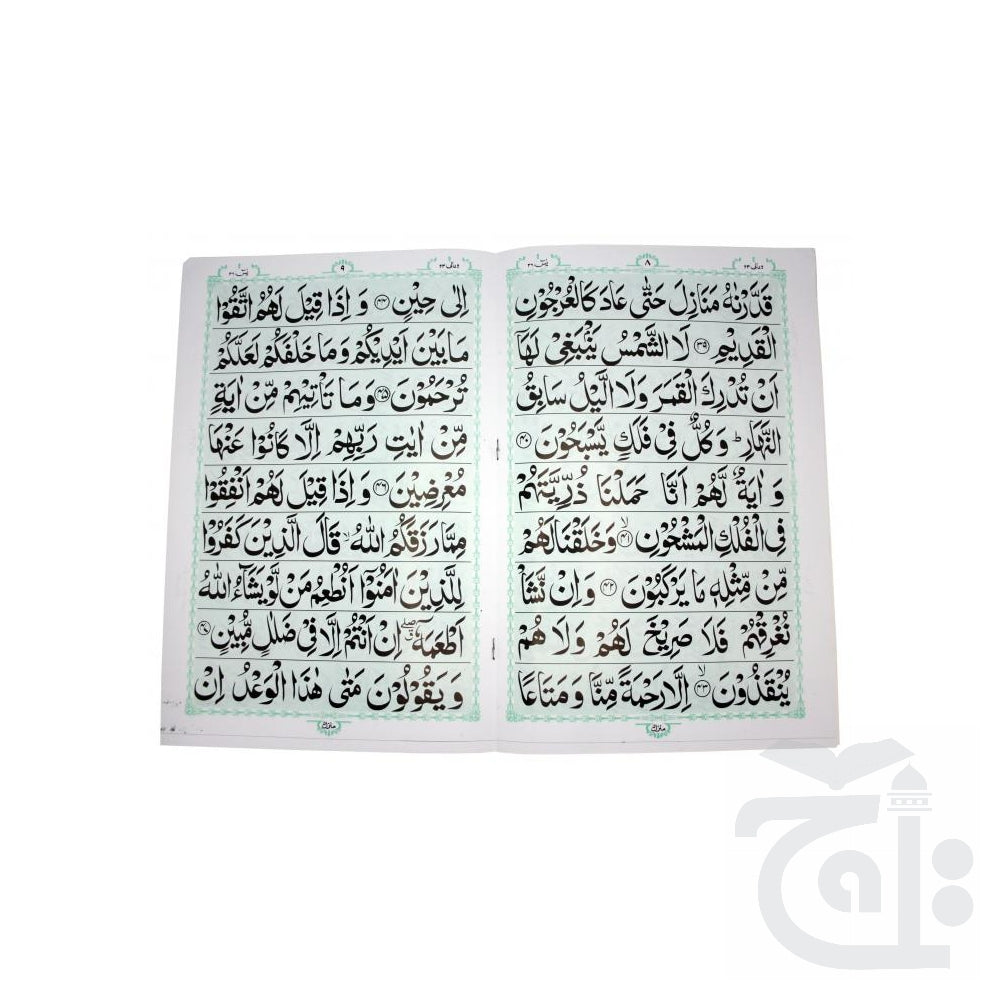 ومالی ۲۳
۸
یٰسٓ ۳۶
قَدَّرْنٰهُ مَنَازِلَ حَتّٰى عَادَ كَالْعُرْجُوْنِ
الْقَدِيْمِ ۝۳۹ لَا الشَّمْسُ يَنْۢبَغِىْ لَهَاۤ
اَنْ تُدْرِكَ الْقَمَرَ وَلَا الَّيْلُ سَابِقُ
النَّهَارِ ؕ وَكُلٌّ فِىْ فَلَكٍ يَّسْبَحُوْنَ ۝۴۰
وَ اٰيَةٌ لَّهُمْ اَنَّا حَمَلْنَا ذُرِّيَّتَهُمْ
فِى الْفُلْكِ الْمَشْحُوْنِ ۝۴۱ۙ وَخَلَقْنَا لَهُمْ
مِّنْ مِّثْلِهٖ مَا يَرْكَبُوْنَ ۝۴۲ وَاِنْ نَّشَاْ
نُغْرِقْهُمْ فَلَا صَرِيْخَ لَهُمْ وَلَا هُمْ
يُنْقَذُوْنَ ۝۴۳ۙ اِلَّا رَحْمَةً مِّنَّا وَمَتَاعًا
منزل
۹
اِلٰى حِيْنٍ ۝۴۴ وَ اِذَا قِيْلَ لَهُمُ اتَّقُوْا
مَا بَيْنَ اَيْدِيْكُمْ وَمَا خَلْفَكُمْ لَعَلَّكُمْ
تُرْحَمُوْنَ ۝۴۵ وَمَا تَاْتِيْهِمْ مِّنْ اٰيَةٍ
مِّنْ اٰيٰتِ رَبِّهِمْ اِلَّا كَانُوْا عَنْهَا
مُعْرِضِيْنَ ۝۴۶ وَ اِذَا قِيْلَ لَهُمْ اَنْفِقُوْا
مِمَّا رَزَقَكُمُ اللّٰهُ ۙ قَالَ الَّذِيْنَ كَفَرُوْا
لِلَّذِيْنَ اٰمَنُوْۤا اَنُطْعِمُ مَنْ لَّوْ يَشَآءُ اللّٰهُ
اَطْعَمَهٗۤ ۖ اِنْ اَنْتُمْ اِلَّا فِىْ ضَلٰلٍ مُّبِيْنٍ ۝۴۷
وَ يَقُوْلُوْنَ مَتٰى هٰذَا الْوَعْدُ اِنْ
منزل